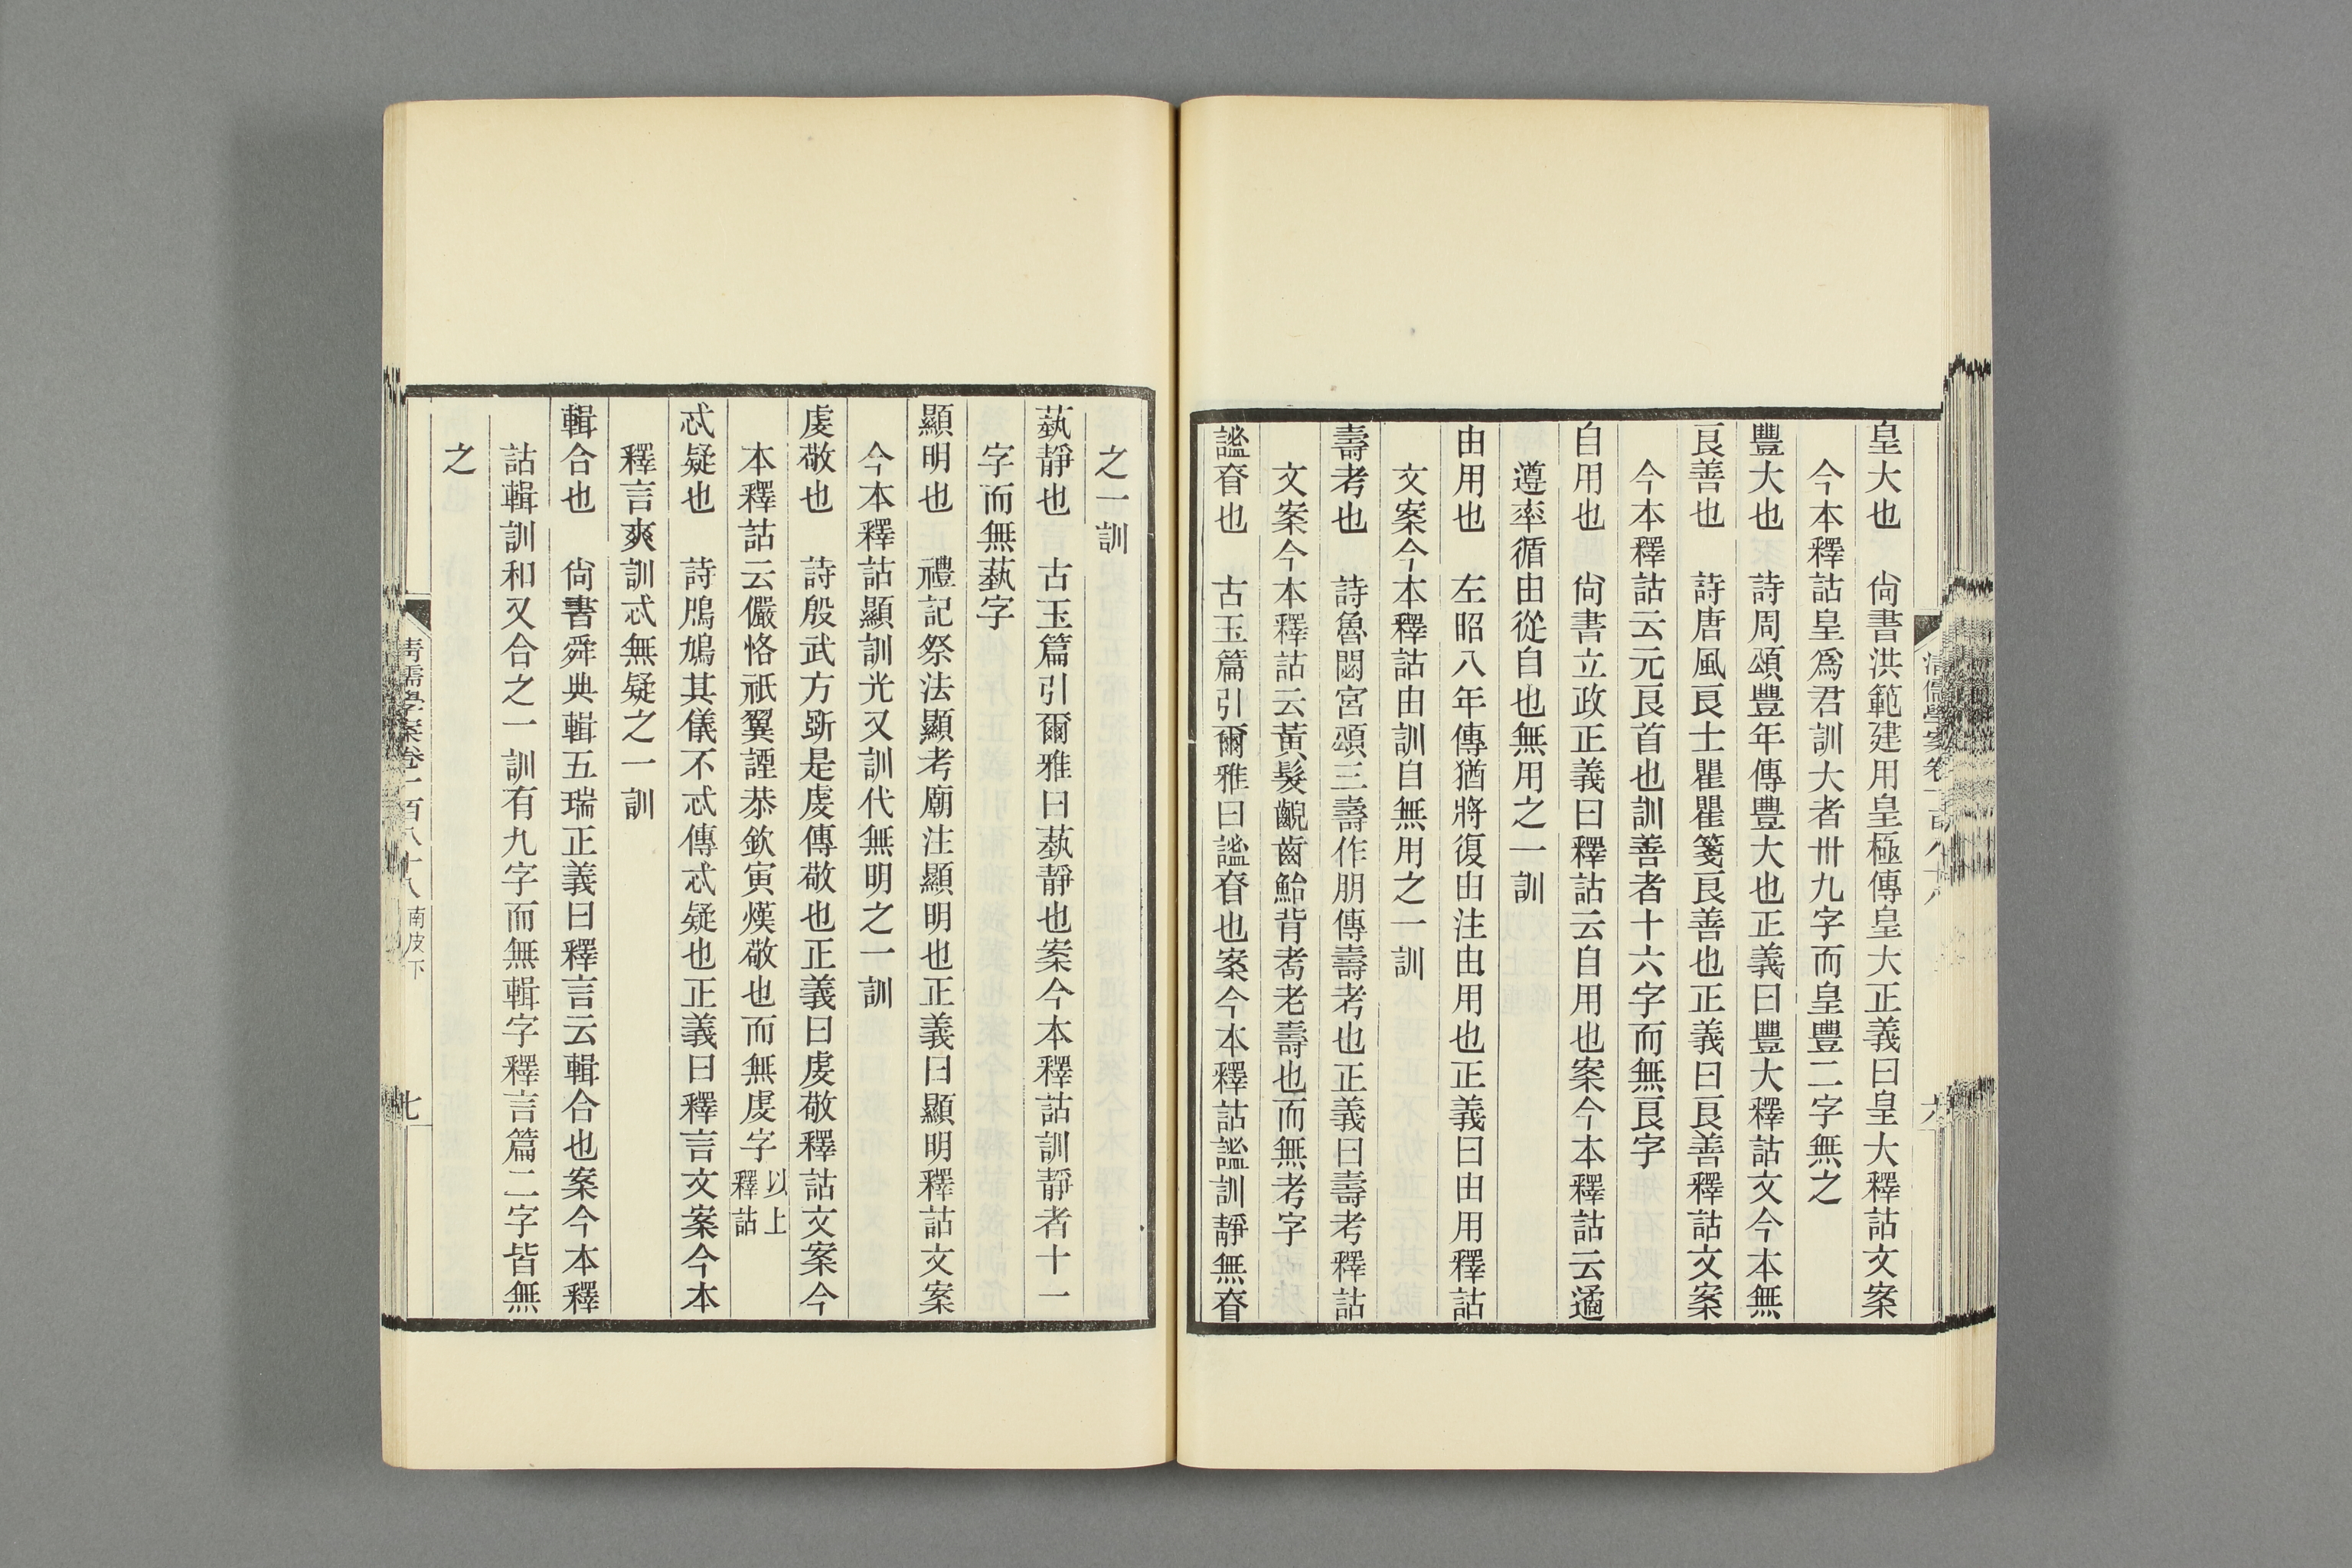 皇大也　尙書洪範建用皇極傳皇大正義曰皇大釋詁文案
今本釋詁皇爲君訓大者卅九字而皇豐二字無之
豐大也　詩周頌豐年傳豐大也正義曰豐大釋詁文今本無
㫐善也　詩唐風㫐士瞿瞿箋㫐善也正義曰㫐善釋詁文案
今本釋詁云元㫐首也訓善者十六字而無㫐字
自用也　尙書立政正義曰釋詁云自用也案今本釋詁云遹
遵率循由從自也無用之一訓
由用也　左昭八年傳猶將復由注由用也正義曰由用釋詁
文案今本釋詁由訓自無用之一訓
壽考也　詩魯閟宮頌三壽作朋傳壽考也正義曰壽考釋詁
文案今本釋詁云黃髮齯齒鮐背耇老壽也而無考字
謐昚也　古玉篇引爾雅曰謐昚也案今本釋詁謐訓靜無昚
之一訓
蓺靜也　古玉篇引爾雅曰蓺靜也案今本釋詁訓靜者十一
字而無蓺字
顯明也　禮記祭法顯考廟注顯明也正義曰顯明釋詁文案
今本釋詁顯訓光又訓代無明之一訓
虔敬也　詩殷武方斲是虔傳敬也正義曰虔敬釋詁文案今
本釋詁云儼恪祇翼諲恭欽寅熯敬也而無虔字以上釋詁
忒疑也　詩鳲鳩其儀不忒傳忒疑也正義曰釋言文案今本
釋言爽訓忒無疑之一訓
輯合也　尙書舜典輯五瑞正義曰釋言云輯合也案今本釋
詁輯訓和又合之一訓有九字而無輯字釋言篇二字皆無
之
清儒學案卷一百八十八　南皮下　七